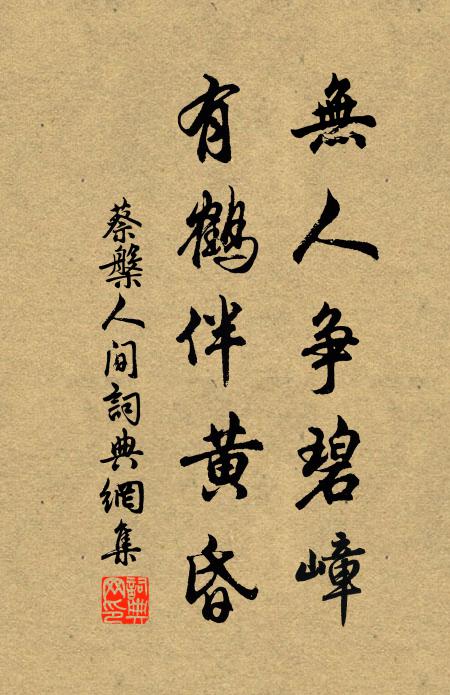 無人争碧嶂
有鶴伴黄昏
蔡槃人间詞典網集
詞典网印